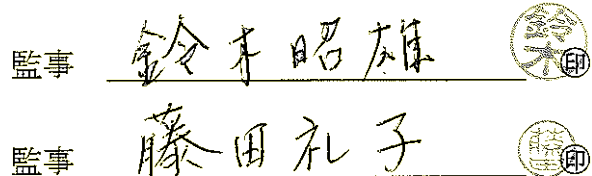 監事 鈴木昭雄 鈴木 ㊞
監事 藤田礼子 藤田 ㊞